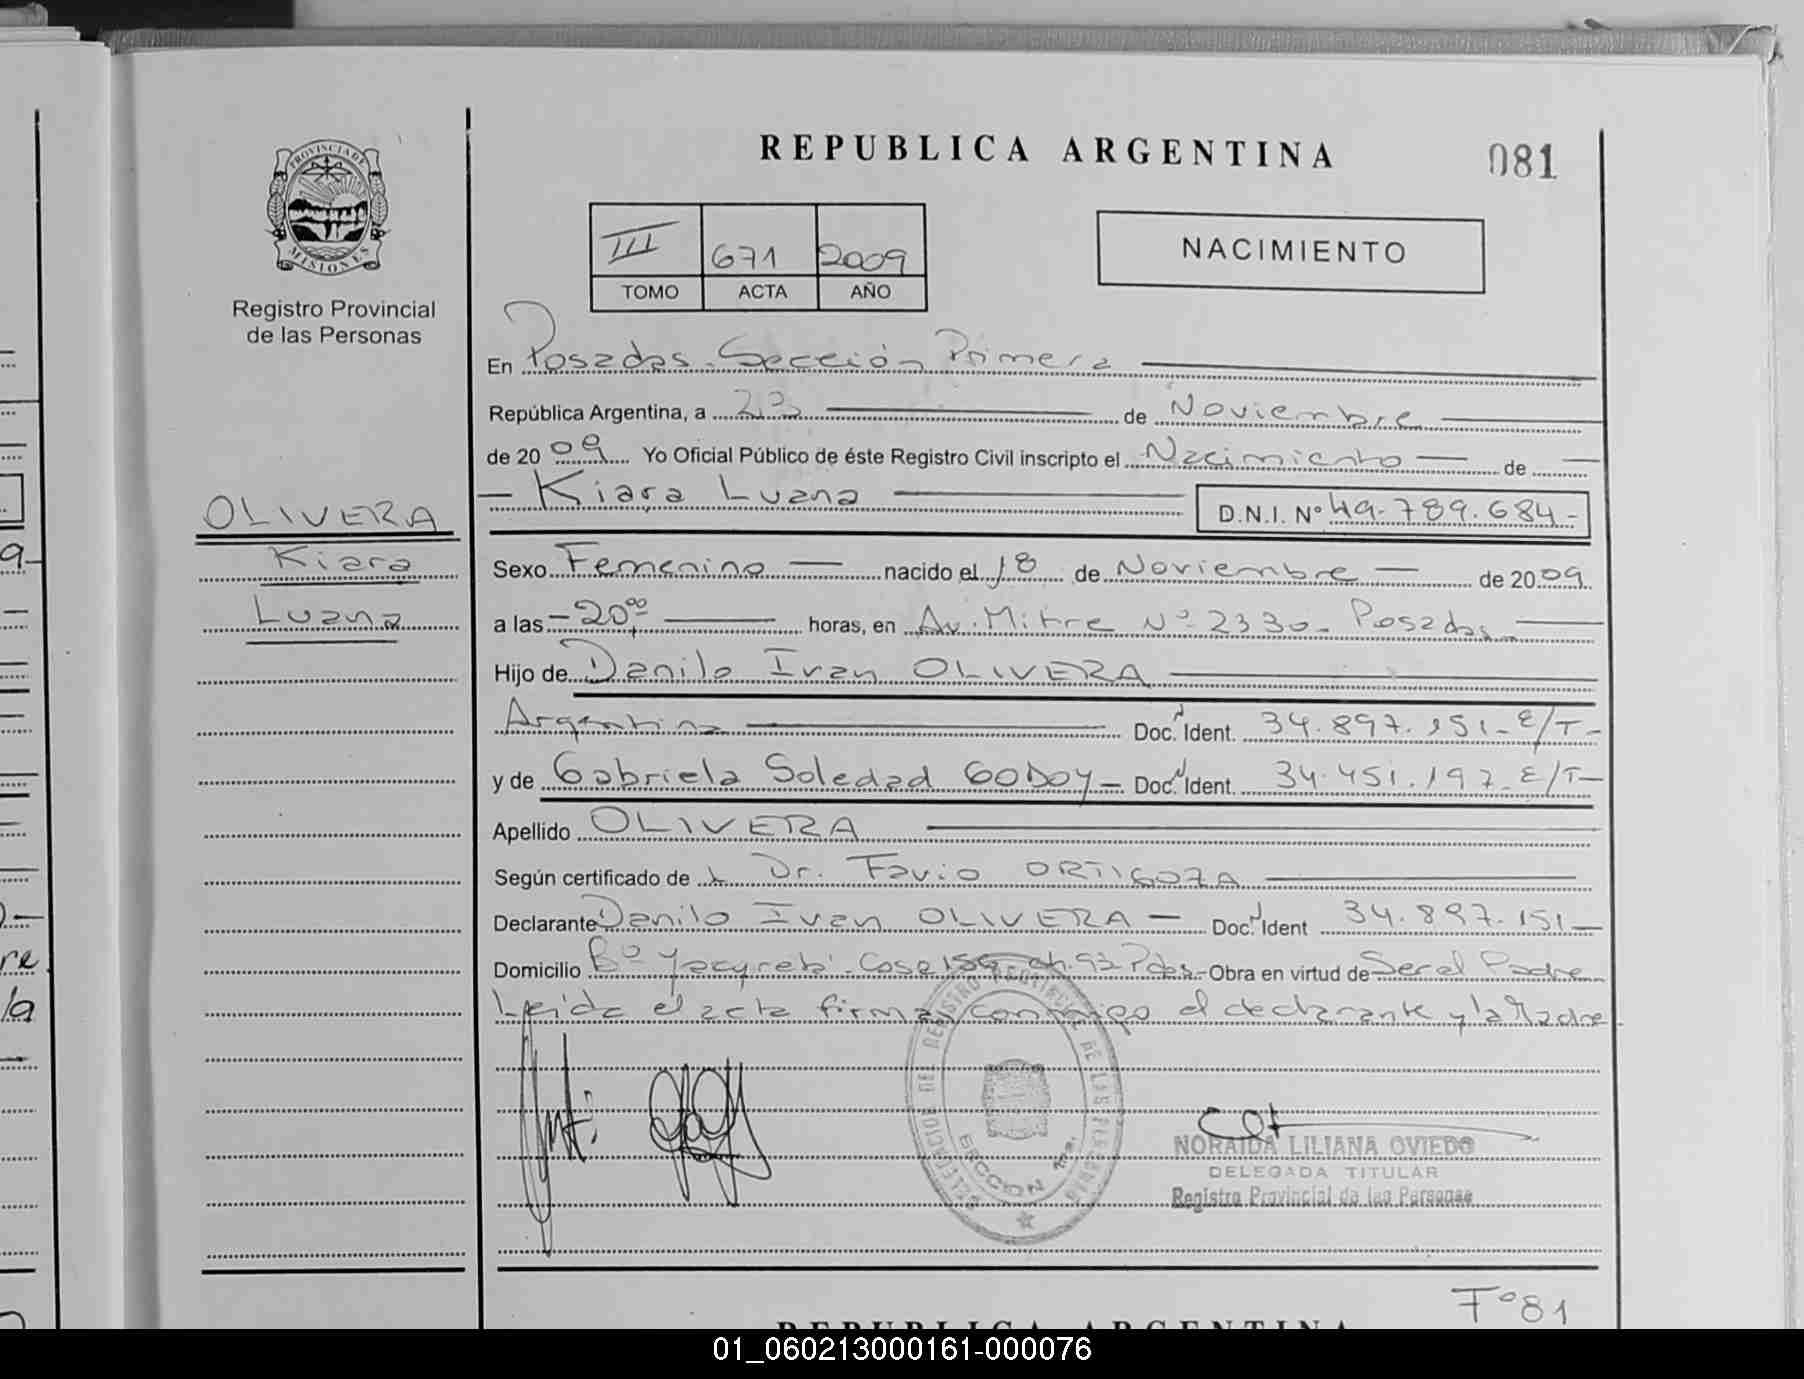 REPUBLICA ARGENTINA
081
PROVINCIA DE
MISIONES
Registro Provincial
de las Personas
III 671 2009
TOMO ACTA AÑO
NACIMIENTO
En Posadas. Sección Primera
República Argentina, a 23 de Noviembre
de 2009 Yo Oficial Público de éste Registro Civil inscripto el Nacimiento de
Kiara Luana
D.N.I. Nº 49.789.684-
OLIVERA
Kiara
Luana
Sexo Femenino nacido el 18 de Noviembre de 2009
a las -20⁰⁰ horas, en Av. Mitre Nº 2330- Posadas
Hijo de Danilo Ivan OLIVERA
Argentina Doc. Ident. 34.897.151- E/T-
y de Gabriela Soledad GODOY- Doc. Ident. 34.451.197- E/T-
Apellido OLIVERA
Según certificado de Dr. Favio ORTIGOZA
Declarante Danilo Ivan OLIVERA - Doc. Ident 34.897.151-
Domicilio Bº Yacyretá. Casa ch. 93 Pdas.- Obra en virtud de Ser el Padre
Leida el acta firman conmigo el declarante y la Madre
DELEGACION DEL REGISTRO PROVINCIAL DE LAS PERSONAS
SECCION 1ra.
NORAIDA LILIANA OVIEDO
DELEGADA TITULAR
Registro Provincial de las Personas
Fº81
REPUBLICA ARGENTINA
01_060213000161-000076